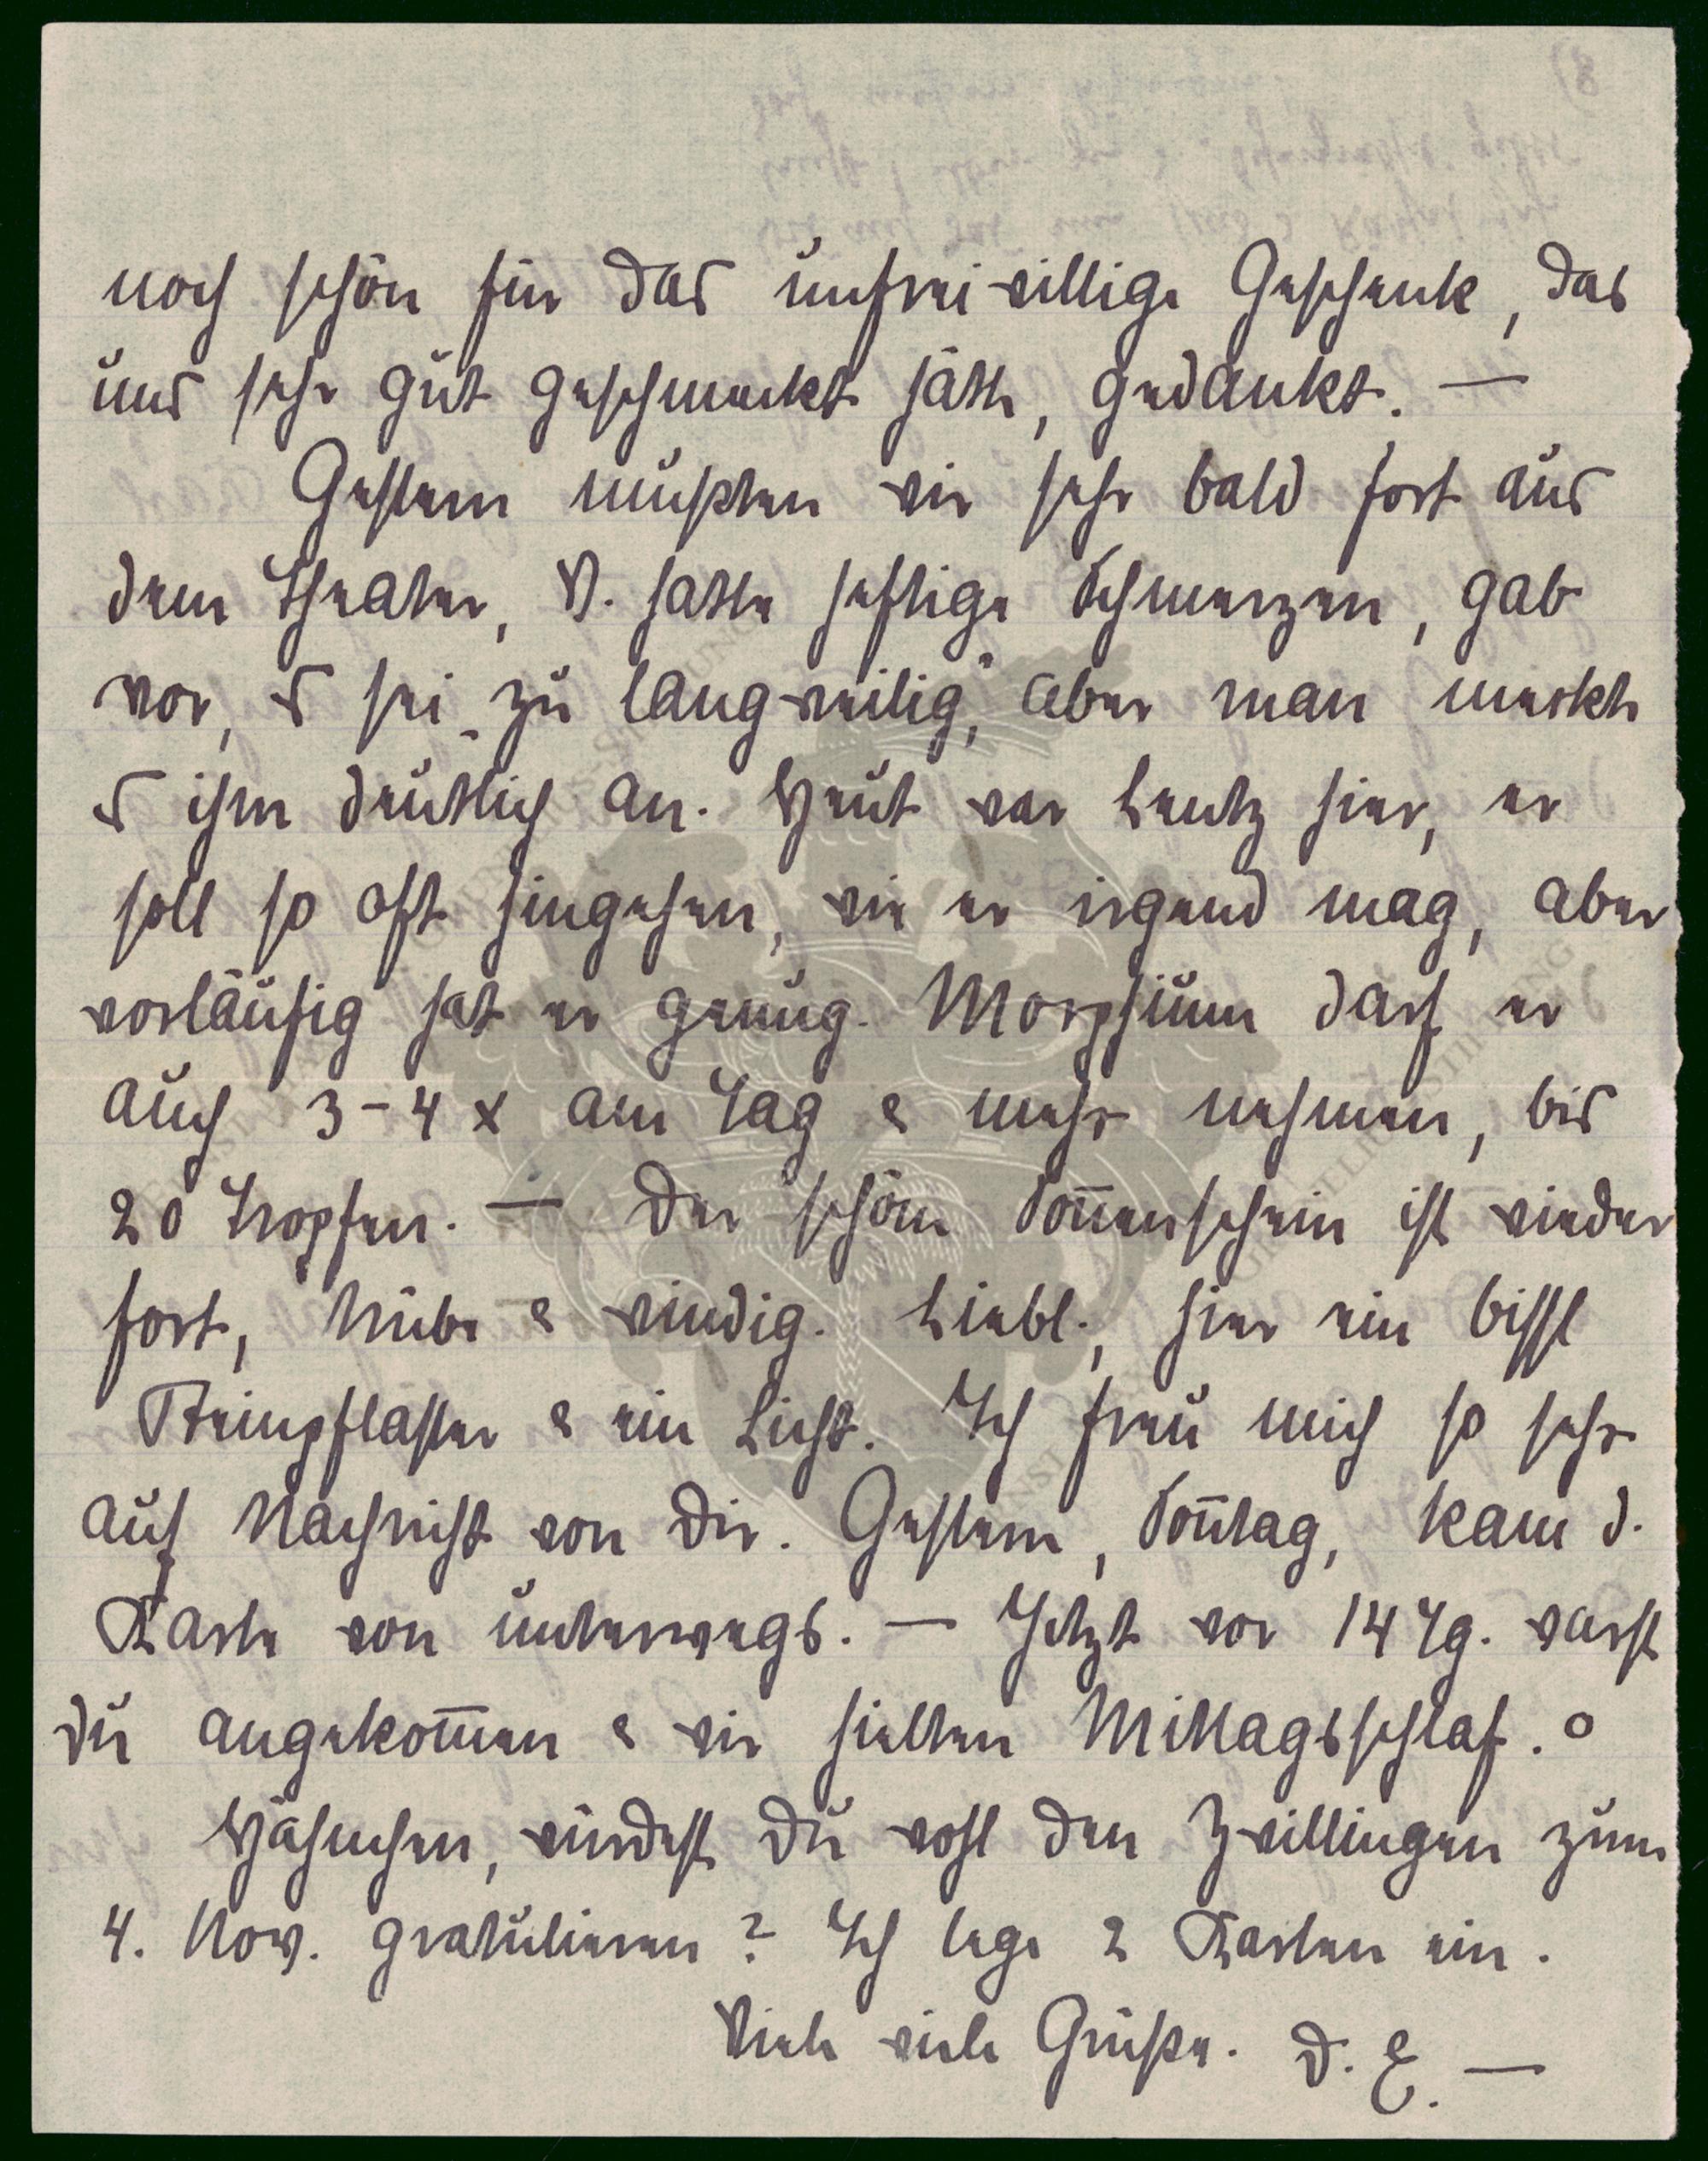 noch schön für das unfreiwillige Geschenk, das
uns sehr gut geschmeckt hätte, gedankt. —
Gestern mußten wir sehr bald fort aus
dem Theater, V. hatte heftige Schmerzen, gab
vor, es sei „zu langweilig", aber man merkte
es ihm deutlich an. Heut war Lentz hier, er
soll so oft hingehen, wie er irgend mag, aber
vorläufig hat er genug. Morphium darf er
auch 3–4 x am Tag & mehr nehmen, bis
20 Tropfen. — Der schöne Soñenschein ist wieder
fort, trübe & windig. Liebl., hier ein bissl
Beinpflaster & ein Licht. Ich freu mich so sehr
auf Nachricht von Dir. Gestern, Soñtag, kam d.
Karte von unterwegs. — Jetzt vor 14 Tg. warst
du angekom̄en & wir hielten Mittagsschlaf. °
Hähnchen, würdest Du wohl den Zwillingen zum
4. Nov. gratulieren? Ich lege 2 Karten ein.
Viele viele Grüße. D. E. —